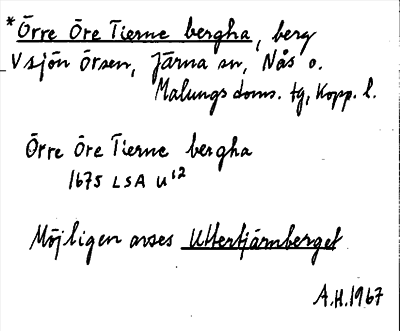 *Örre Öre Tierne bergha, berg
V sjön Örsen, Järna sn, Nås o.
Malungs doms. tg, Kopp. l.
Örre Öre Tierne bergha
1675 LSA U12
Möjligen avses Uttertjärnberget
A.H. 1967